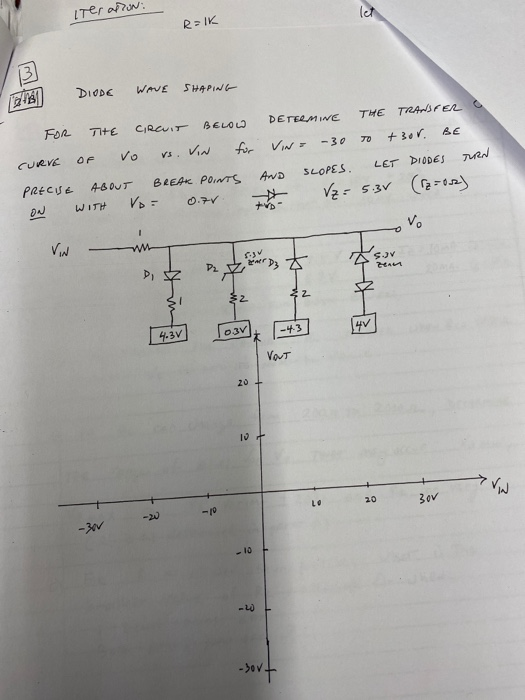 ITERATION:
R=1K
let
3
DIODE WAVE SHAPING
FOR THE CIRCUIT BELOW DETERMINE THE TRANSFER C
CURVE OF VO VS. VIN for VIN = -30 TO +30V. BE
PRECISE ABOUT BREAK POINTS AND SLOPES. LET DIODES TURN
ON WITH VD = 0.7V +VD- VZ = 5.3V (rZ=0Ω)
VIN 1 Vo
D1 D2 5.3V Zener D3 5.3V Zener
1 2 2
4.3V 0.3V -4.3 4V
VOUT
20
10
-30V -20 -10 10 20 30V VIN
-10
-20
-30V